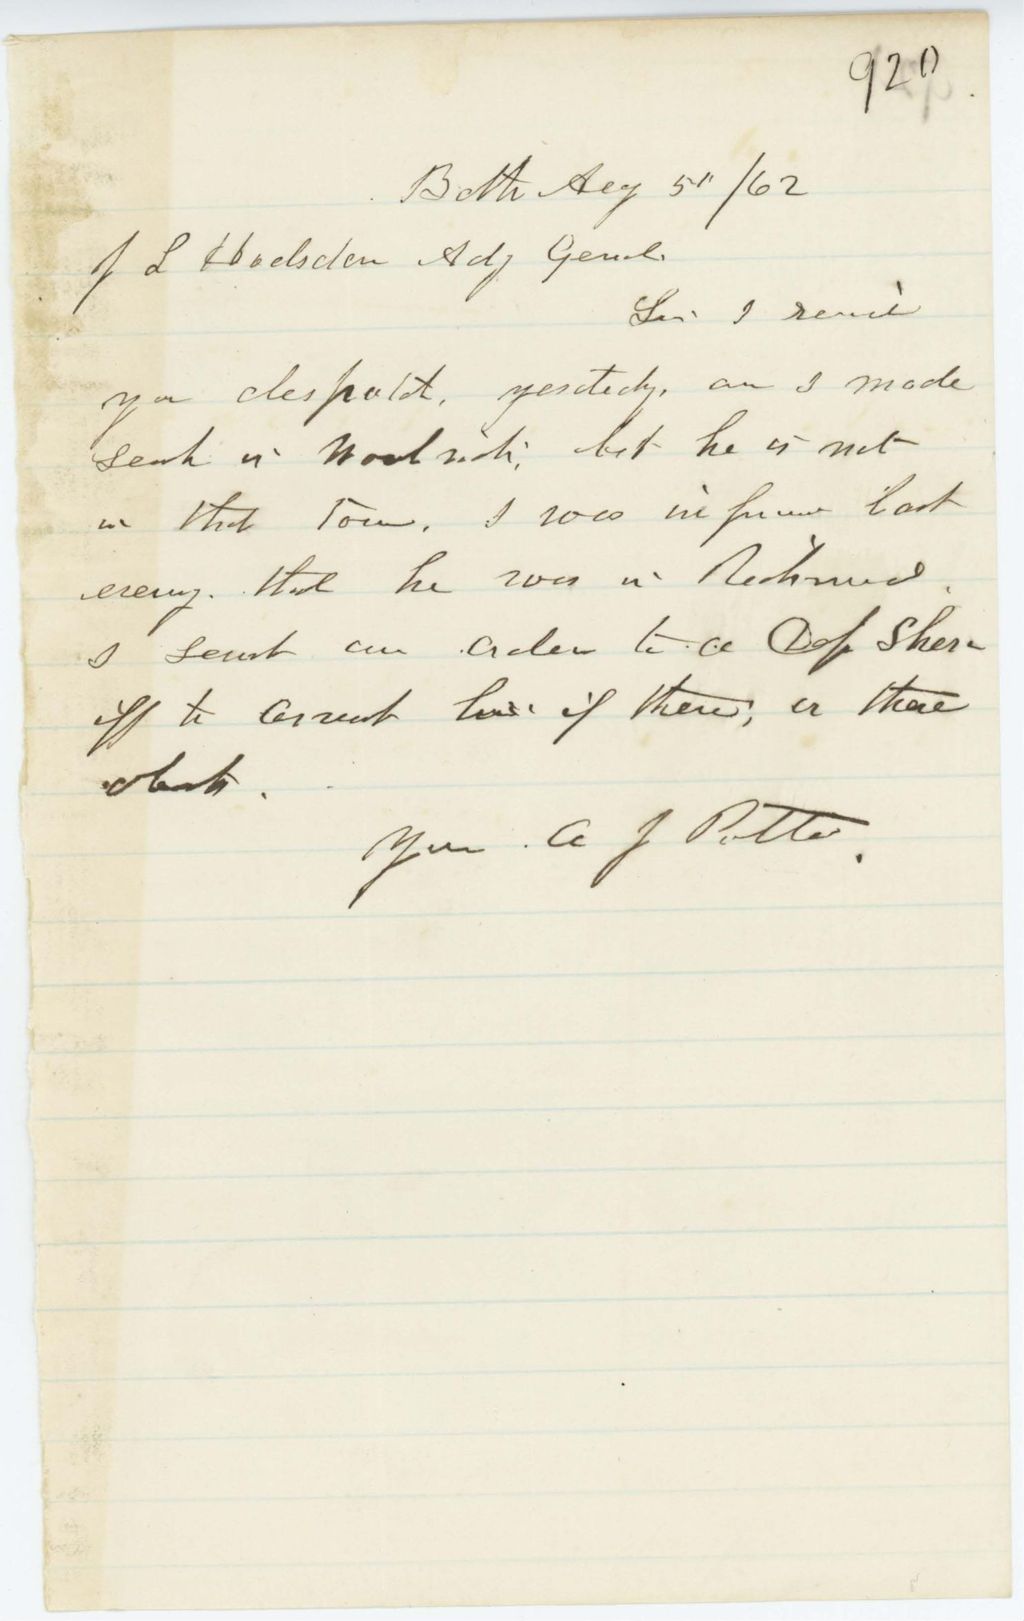 920
Bath Aug 5" /62
J L Hodsdon Adj Genl.
Sir I recvd
you despatch, yesterday. an I made
serch in Woolwich, but he is not
in that Town. I was informd last
eveng. that he was in Richmond.
I sent an order to a Dep Sher
iff to arrest him if there, or there
abouts.
Your A J Potter.